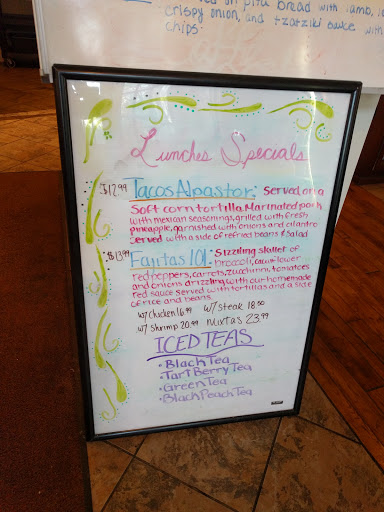 on pita bread with lamb,
crispy onion, and tzatziki sauce with
chips.
Lunches Specials
$12.99 Tacos Alpastor: Served on a
Soft corn tortilla. Marinated pork
with mexican seasonings, grilled with fresh
pineapple, garnished with onions and cilantro
served with a side of refried beans & Salad
$13.99 Fajitas 101: Sizzling skillet of
broccoli, cauliflower
red peppers, carrots, zucchini, tomatoes
and onions drizzling with our homemade
red sauce served with tortillas and a side
of rice and beans
w/ chicken 16.99 w/ steak 18.50
w/ shrimp 20.99 mixtas 23.99
ICED TEAS
• Black Tea
• Tart Berry Tea
• Green Tea
• Black Peach Tea